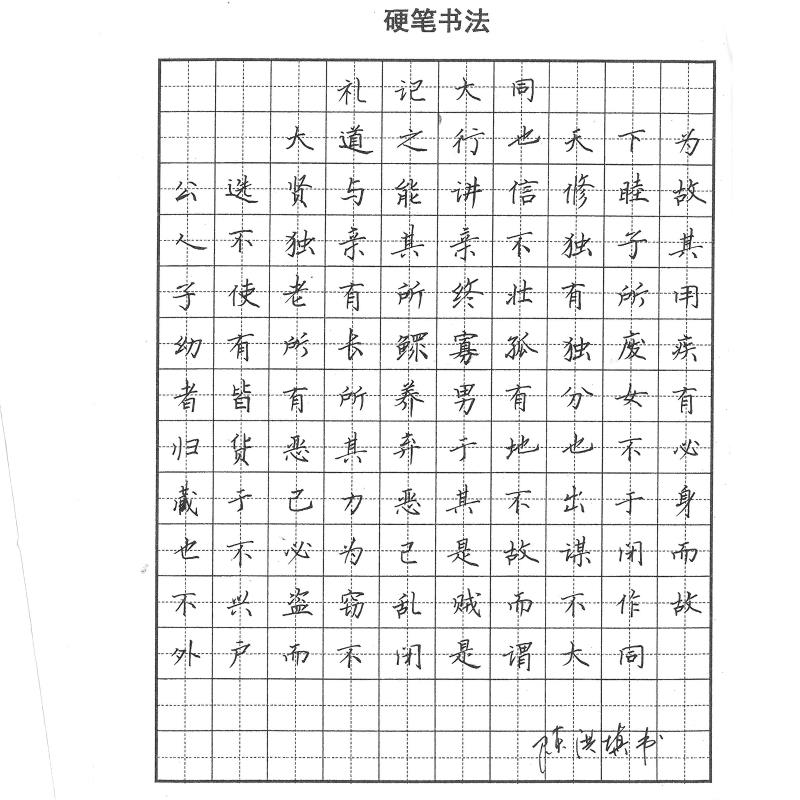 硬笔书法
礼记大同
大道之行也天下为
公选贤与能讲信修睦故
人不独亲其亲不独子其
子使老有所终壮有所用
幼有所长鳏寡孤独废疾
者皆有所养男有分女有
归货恶其弃于地也不必
藏于己力恶其不出于身
也不必为己是故谋闭而
不兴盗窃乱贼而不作故
外户而不闭是谓大同
陈洪填书